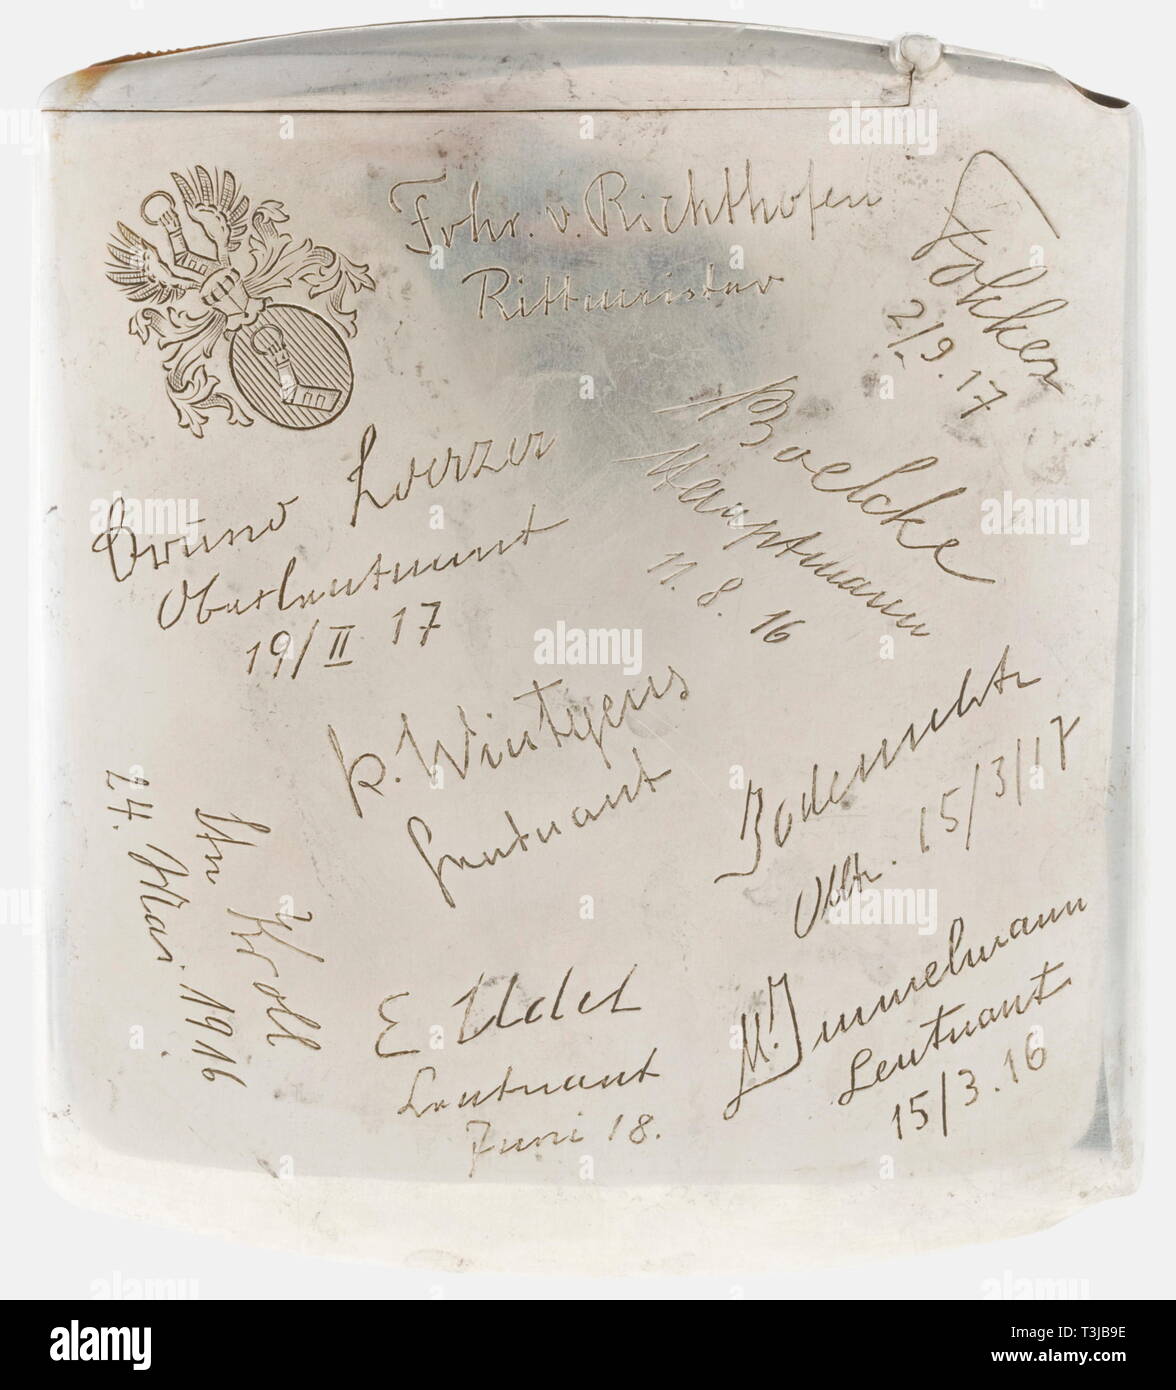 Frhr. v. Richthofen
Rittmeister
Fokker
2/9. 17
Boelcke
Hauptmann
11. 8. 16
Bruno Loerzer
Oberleutnant
19/II 17
K. Wintgens
Leutnant
Bodenschtz
Oblt. 15/3/17
Ltn Kroll
24. Mai. 1916
E Udet
Leutnant
Juni 18.
M. Immelmann
Leutnant
15/3. 16
alamy
alamy
Image ID: T3JB9E
www.alamy.com